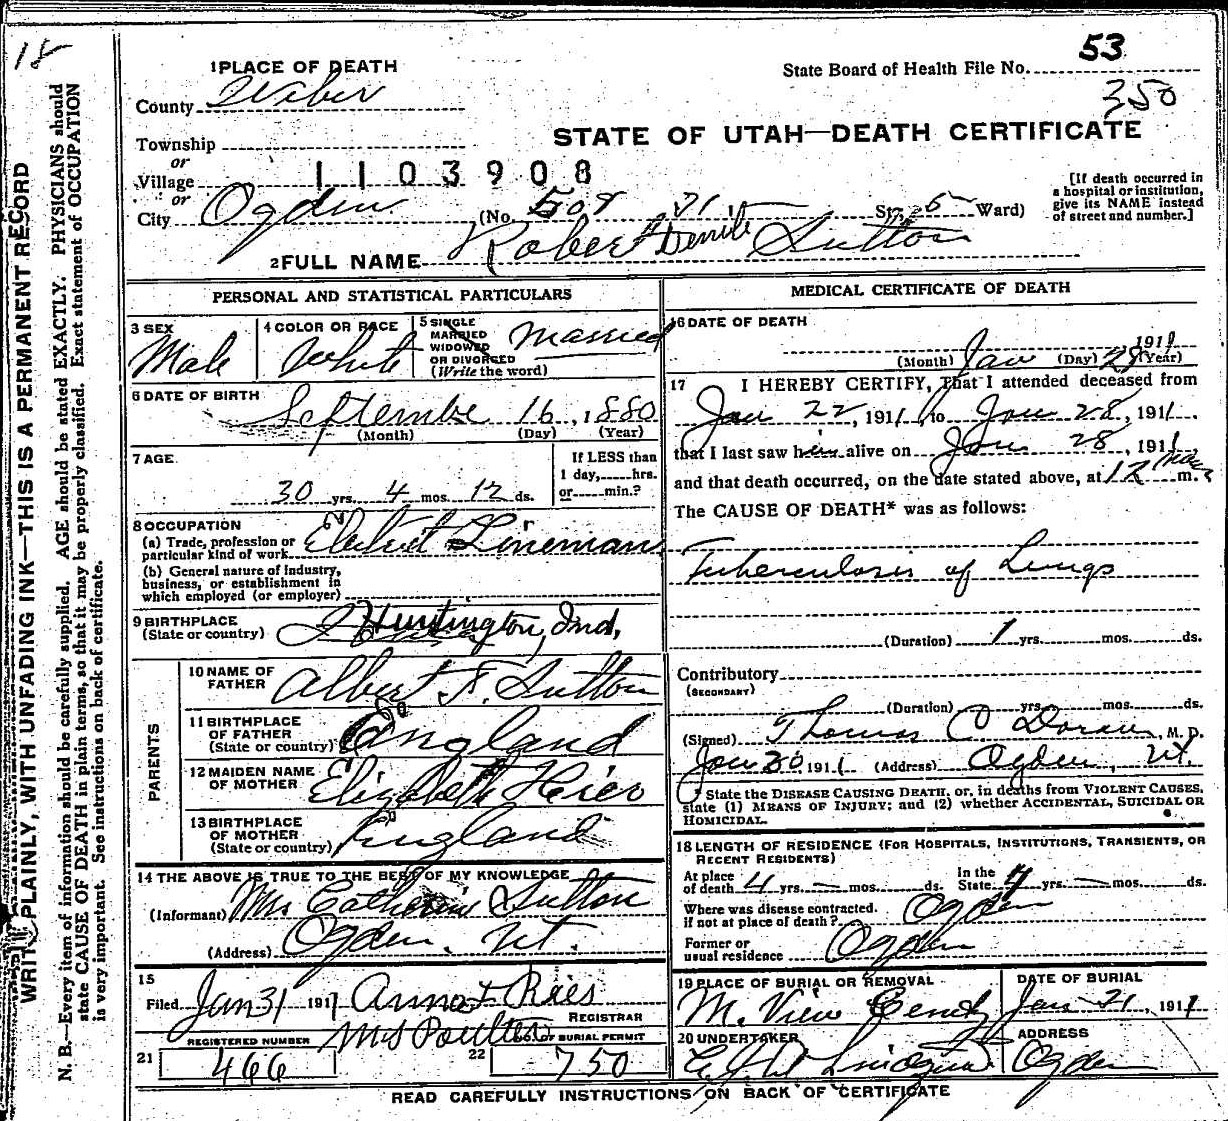 18
WRITE PLAINLY, WITH UNFADING INK—THIS IS A PERMANENT RECORD
N. B.—Every item of information should be carefully supplied. AGE should be stated EXACTLY. PHYSICIANS should
state CAUSE OF DEATH in plain terms, so that it may be properly classified. Exact statement of OCCUPATION
is very important. See instructions on back of certificate.
1 PLACE OF DEATH
County Weber
Township
or
Village
or
City Ogden
1103908
State Board of Health File No. 53
350
STATE OF UTAH—DEATH CERTIFICATE
(No. 508 21 St., 5 Ward)
[If death occurred in
a hospital or institution,
give its NAME instead
of street and number.]
2 FULL NAME Robert Sutton
PERSONAL AND STATISTICAL PARTICULARS
3 SEX
Male
4 COLOR OR RACE
White
5 SINGLE
MARRIED
WIDOWED
OR DIVORCED
(Write the word)
Married
6 DATE OF BIRTH
September 16, 1880
(Month) (Day) (Year)
7 AGE
30 yrs. 4 mos. 12 ds.
If LESS than
1 day, hrs.
or min.?
8 OCCUPATION
(a) Trade, profession or
particular kind of work Lineman
(b) General nature of industry,
business, or establishment in
which employed (or employer)
9 BIRTHPLACE
(State or country) Huntington, Ind,
PARENTS
10 NAME OF
FATHER Albert F. Sutton
11 BIRTHPLACE
OF FATHER
(State or country) England
12 MAIDEN NAME
OF MOTHER Elizabeth Heier
13 BIRTHPLACE
OF MOTHER
(State or country) England
14 THE ABOVE IS TRUE TO THE BEST OF MY KNOWLEDGE
(Informant) Mrs Catherine Sutton
(Address) Ogden. Ut.
15
Filed Jan 31 1911 Anna F Ries
REGISTRAR
Mrs Poulter
REGISTERED NUMBER
NO. OF BURIAL PERMIT
21 466
22 750
MEDICAL CERTIFICATE OF DEATH
16 DATE OF DEATH
Jan 28 1911
(Month) (Day) (Year)
17 I HEREBY CERTIFY, That I attended deceased from
Jan 22, 1911, to Jan 28, 1911.
that I last saw him alive on Jan 28, 1911
and that death occurred, on the date stated above, at 12 m.
The CAUSE OF DEATH* was as follows:
Tuberculosis of Lungs
(Duration) 1 yrs. mos. ds.
Contributory
(SECONDARY)
(Duration) yrs. mos. ds.
(Signed) Thomas C Doran, M. D.
Jan 30 1911 (Address) Ogden, Ut.
State the DISEASE CAUSING DEATH, or, in deaths from VIOLENT CAUSES,
state (1) MEANS OF INJURY; and (2) whether ACCIDENTAL, SUICIDAL OR
HOMICIDAL.
18 LENGTH OF RESIDENCE (FOR HOSPITALS, INSTITUTIONS, TRANSIENTS, OR
RECENT RESIDENTS)
At place
of death 4 yrs. — mos. ds.
In the
State 4 yrs. — mos. ds.
Where was disease contracted.
if not at place of death? Ogden
Former or
usual residence Ogden
19 PLACE OF BURIAL OR REMOVAL
M. View Cemty
DATE OF BURIAL
Jan 31, 1911
20 UNDERTAKER
ADDRESS
Ogden
READ CAREFULLY INSTRUCTIONS ON BACK OF CERTIFICATE